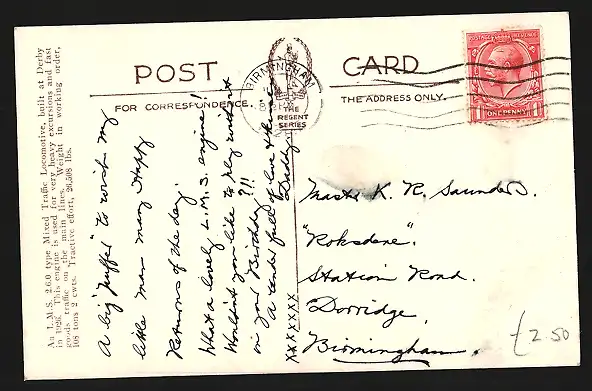 An L.M.S. 2.6.0 type Mixed Traffic Locomotive, built at Derby
in 1926. This engine is used for very heavy excursions and fast
goods traffic on the main lines. Weight in working order,
108 tons 2 cwts. Tractive effort, 26,598 lbs.
POST CARD
FOR CORRESPONDENCE.
THE ADDRESS ONLY.
THE
REGENT
SERIES
BIRMINGHAM
POSTAGE REVENUE
1 ONE PENNY 1
A big "puffer" to wish my
little man many Happy
Returns of the day.
What a lovely L.M.S. engine!
Wouldn't you like to play with it
on your Birthday?!!
A tender full of love &
Daddy.
XXXXXXX
Master K. R. Saunders.
"Roksdene".
Station Road.
Dorridge.
Birmingham.
£2.50